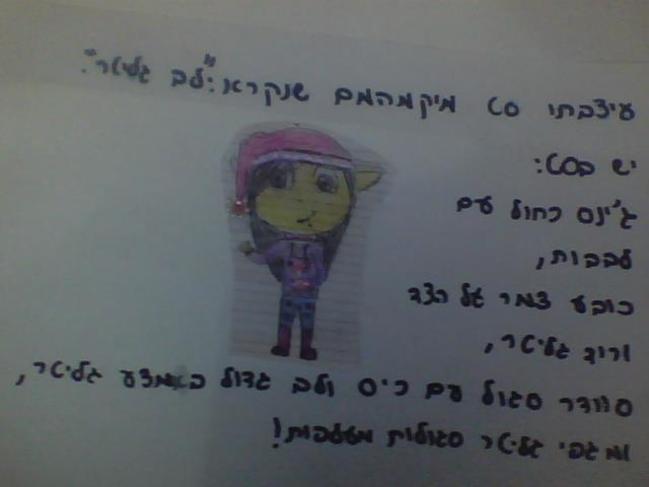 עיצבתי סט מיקמהמם שנקרא:"לב גליטר".
יש בסט:
ג'ינס כחול עם
לבבות,
כובע צמר על הצד
ורוד גליטר,
סוודר סגול עם כיס ולב גדול באמצע גליטר,
ומגפי גליטר סגולות מעלפות!